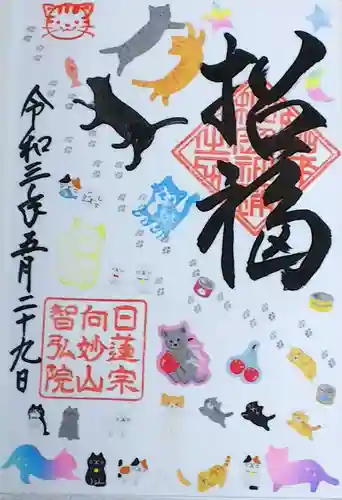 招福
令和三年五月二十九日
日蓮宗
向妙山
智弘院